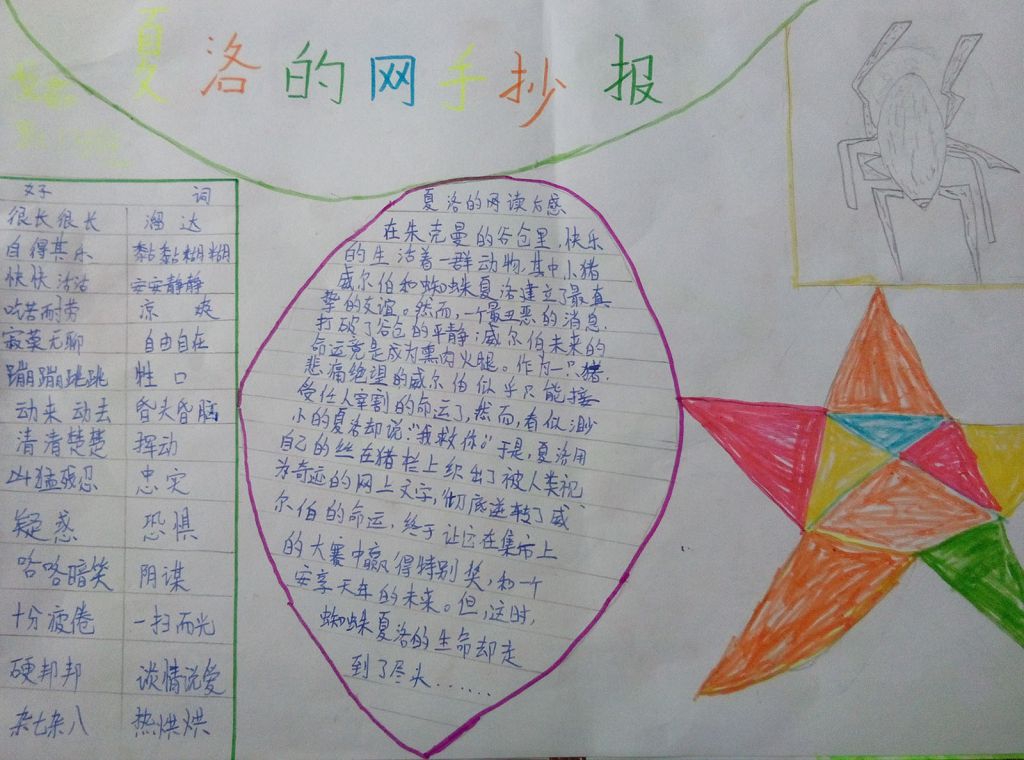 夏洛的网手抄报
好 词
很长很长 溜达
自得其乐 黏黏糊糊
快快活活 安安静静
吃苦耐劳 凉爽
寂寞无聊 自由自在
蹦蹦跳跳 牲口
动来动去 昏头昏脑
清清楚楚 挥动
凶猛残忍 忠实
疑惑 恐惧
咯咯暗笑 阴谋
十分疲倦 一扫而光
硬邦邦 谈情说爱
杂七杂八 热烘烘
夏洛的网读后感
在朱克曼的谷仓里,快乐
的生活着一群动物,其中小猪
威尔伯和蜘蛛夏洛建立了最真
挚的友谊。然而,一个最丑恶的消息
打破了谷仓的平静:威尔伯未来的
命运竟是成为熏肉火腿。作为一只猪,
悲痛绝望的威尔伯似乎只能接
受任人宰割的命运了,然而,看似渺
小的夏洛却说:“我救你。”于是,夏洛用
自己的丝在猪栏上织出了被人类视
为奇迹的网上文字,彻底逆转了威
尔伯的命运,终于让它在集市上
的大赛中赢得特别奖,和一个
安享天年的未来。但,这时,
蜘蛛夏洛的生命却走
到了尽头......